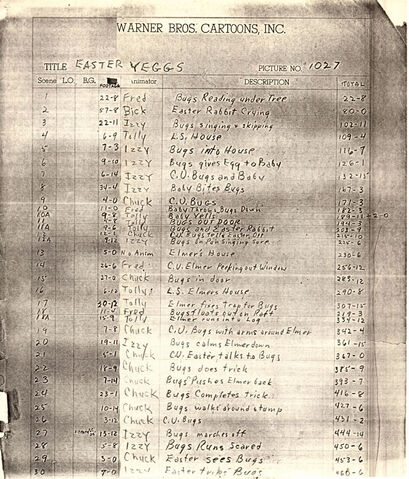 WARNER BROS. CARTOONS, INC.
TITLE EASTER YEGGS PICTURE NO. 1027
Scene L.O. B.G. FOOTAGE Animator DESCRIPTION TOTAL
1 22-8 Fred Bugs Reading under Tree 22-8
2 57-8 Bick Easter Rabbit Crying 80-0
3 22-11 Izzy Bugs singing & skipping 102-11
4 6-9 Tolly L.S. House 109-4
5 7-3 Izzy Bugs into House 116-7
6 9-10 Izzy Bugs gives Egg to Baby 126-1
7 6-14 Izzy C.U. Bugs and Baby 132-15
8 34-4 Izzy Baby Bites Bugs 167-3
9 4-0 Chuck C.U. BUGS 171-3
10 11-0 Fred Baby Bugs Down 182-3
10A 9-8 Tolly Baby Yells
11 Tolly BUGS OUT DOOR
11A 9-6 Tolly Bugs and Easter Rabbit
12 Chuck C.U. Bugs tells Easter
12A 9-12 Izzy Bugs On Pan Singing Sore
13 5-0 No Anim Elmer's House 230-6
14 26-6 Fred C.U. Elmer Peeking out Window 256-12
15 27-0 Chuck Bugs in door 283-12
16 6-12 Tolly L.S. Elmers House 290-8
17 Tolly Elmer fires Trap for Bugs 307-15
18 Fred Bugs out on
18A Tolly Elmer runs into Log
19 7-8 Chuck C.U. Bugs with arms around Elmer 342-4
20 19-11 Izzy Bugs calms Elmer down 361-15
21 5-1 Chuck CU. Easter talks to Bugs 367-0
22 18-9 Chuck Bugs does trick 385-9
23 7-14 Chuck Bugs Pushes Elmer back 393-7
24 23-1 Chuck Bugs Completes trick 416-8
25 10-14 Chuck Bugs walks around stump 427-6
26 Chuck C.U. Bugs
27 13-12 Izzy Bugs marches off 444-14
28 5-8 Izzy Bugs Runs Scared 450-6
29 3-0 Chuck Easter sees Bugs 453-6
30 Izzy Easter Bugs